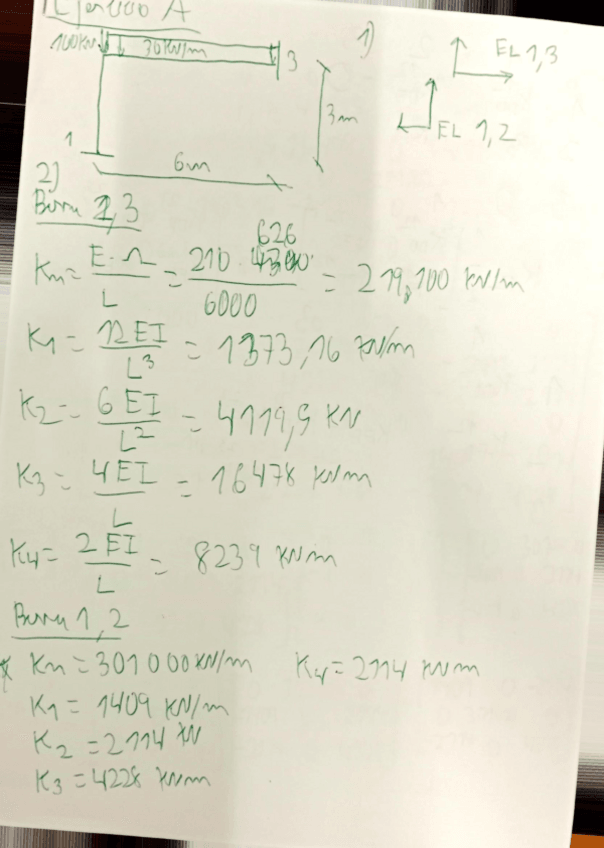 Ejercicio A
100KN 30KN/m 3
1) EL 1,3
3m
EL 1,2
1
6m
2)
Barra 2,3
626
Kn = E·Ω / L = 210 · 4300 / 6000 = 219,100 KN/m
K1 = 12EI / L³ = 1373,16 KN/m
K2 = 6EI / L² = 4119,5 KN
K3 = 4EI / L = 16478 KNm
K4 = 2EI / L = 8239 KNm
Barra 1,2
Kn = 301000 KN/m K4 = 2114 KNm
K1 = 1409 KN/m
K2 = 2114 KN
K3 = 4228 KNm